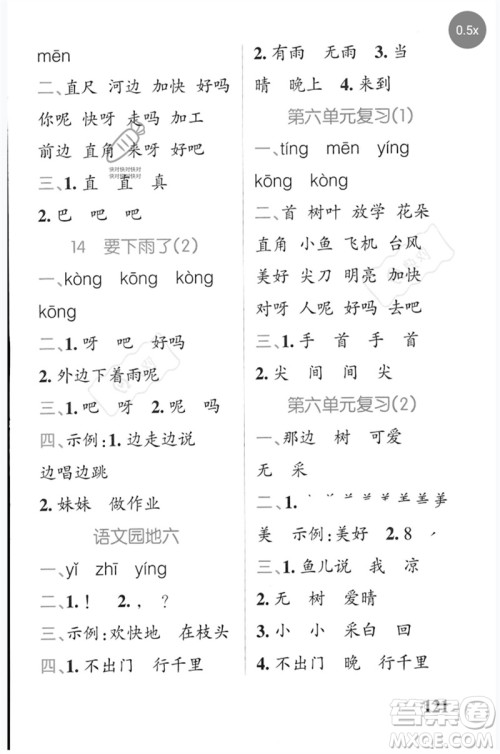 0.5x
mēn
二、直尺 河边 加快 好吗
你呢 快呀 走呀 加工
前边 直角 来了呀 好吧
三、1. 直 直 真
2. 巴 吧 吧
14 要下雨了(2)
一、kòng kōng kòng
kōng
二、1. 呀 吧 好吗
2. 外边下着雨呢
三、1. 吧 呀 2. 呢 吗
四、示例:1. 边走边说
边唱边跳
2. 妹妹 做作业
语文园地六
一、yǐ zhī yíng
二、1. ! 2. ，
三、示例:欢快地 在枝头
四、1. 不出门 行千里
2. 有雨 无雨 3. 当
晴 晚上 4. 来到
第六单元复习(1)
一、tíng mēn yíng
kōng kòng
二、首 树叶 放学 花朵
直角 小鱼 飞机 台风
美好 尖刀 明亮 加快
对呀 人们 首都 空地
三、1. 手 首 手 首
2. 尖 间 间 尖
第六单元复习(2)
一、那边 树 可爱
无 采
二、1.
美 示例:美好 2. 8
三、1. 鱼儿说 我 凉
2. 无 树 爱晴
3. 尖尖 小 采白 回
四、1. 不出门 晚 行千里
2.
121
答案圈
MXQE.COM